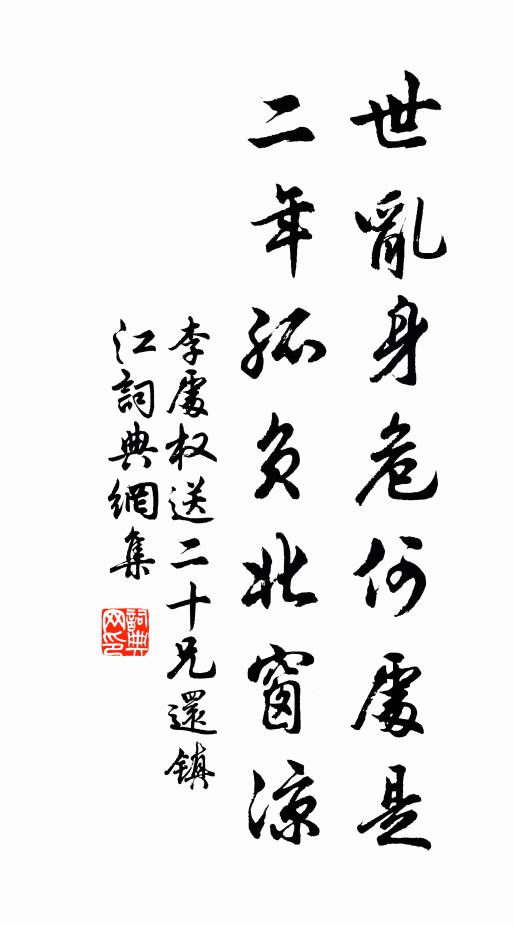 世亂身危何處是
二年孤負北窗涼
李處权送二十兄還鎮
江詞典網集
詞典网印